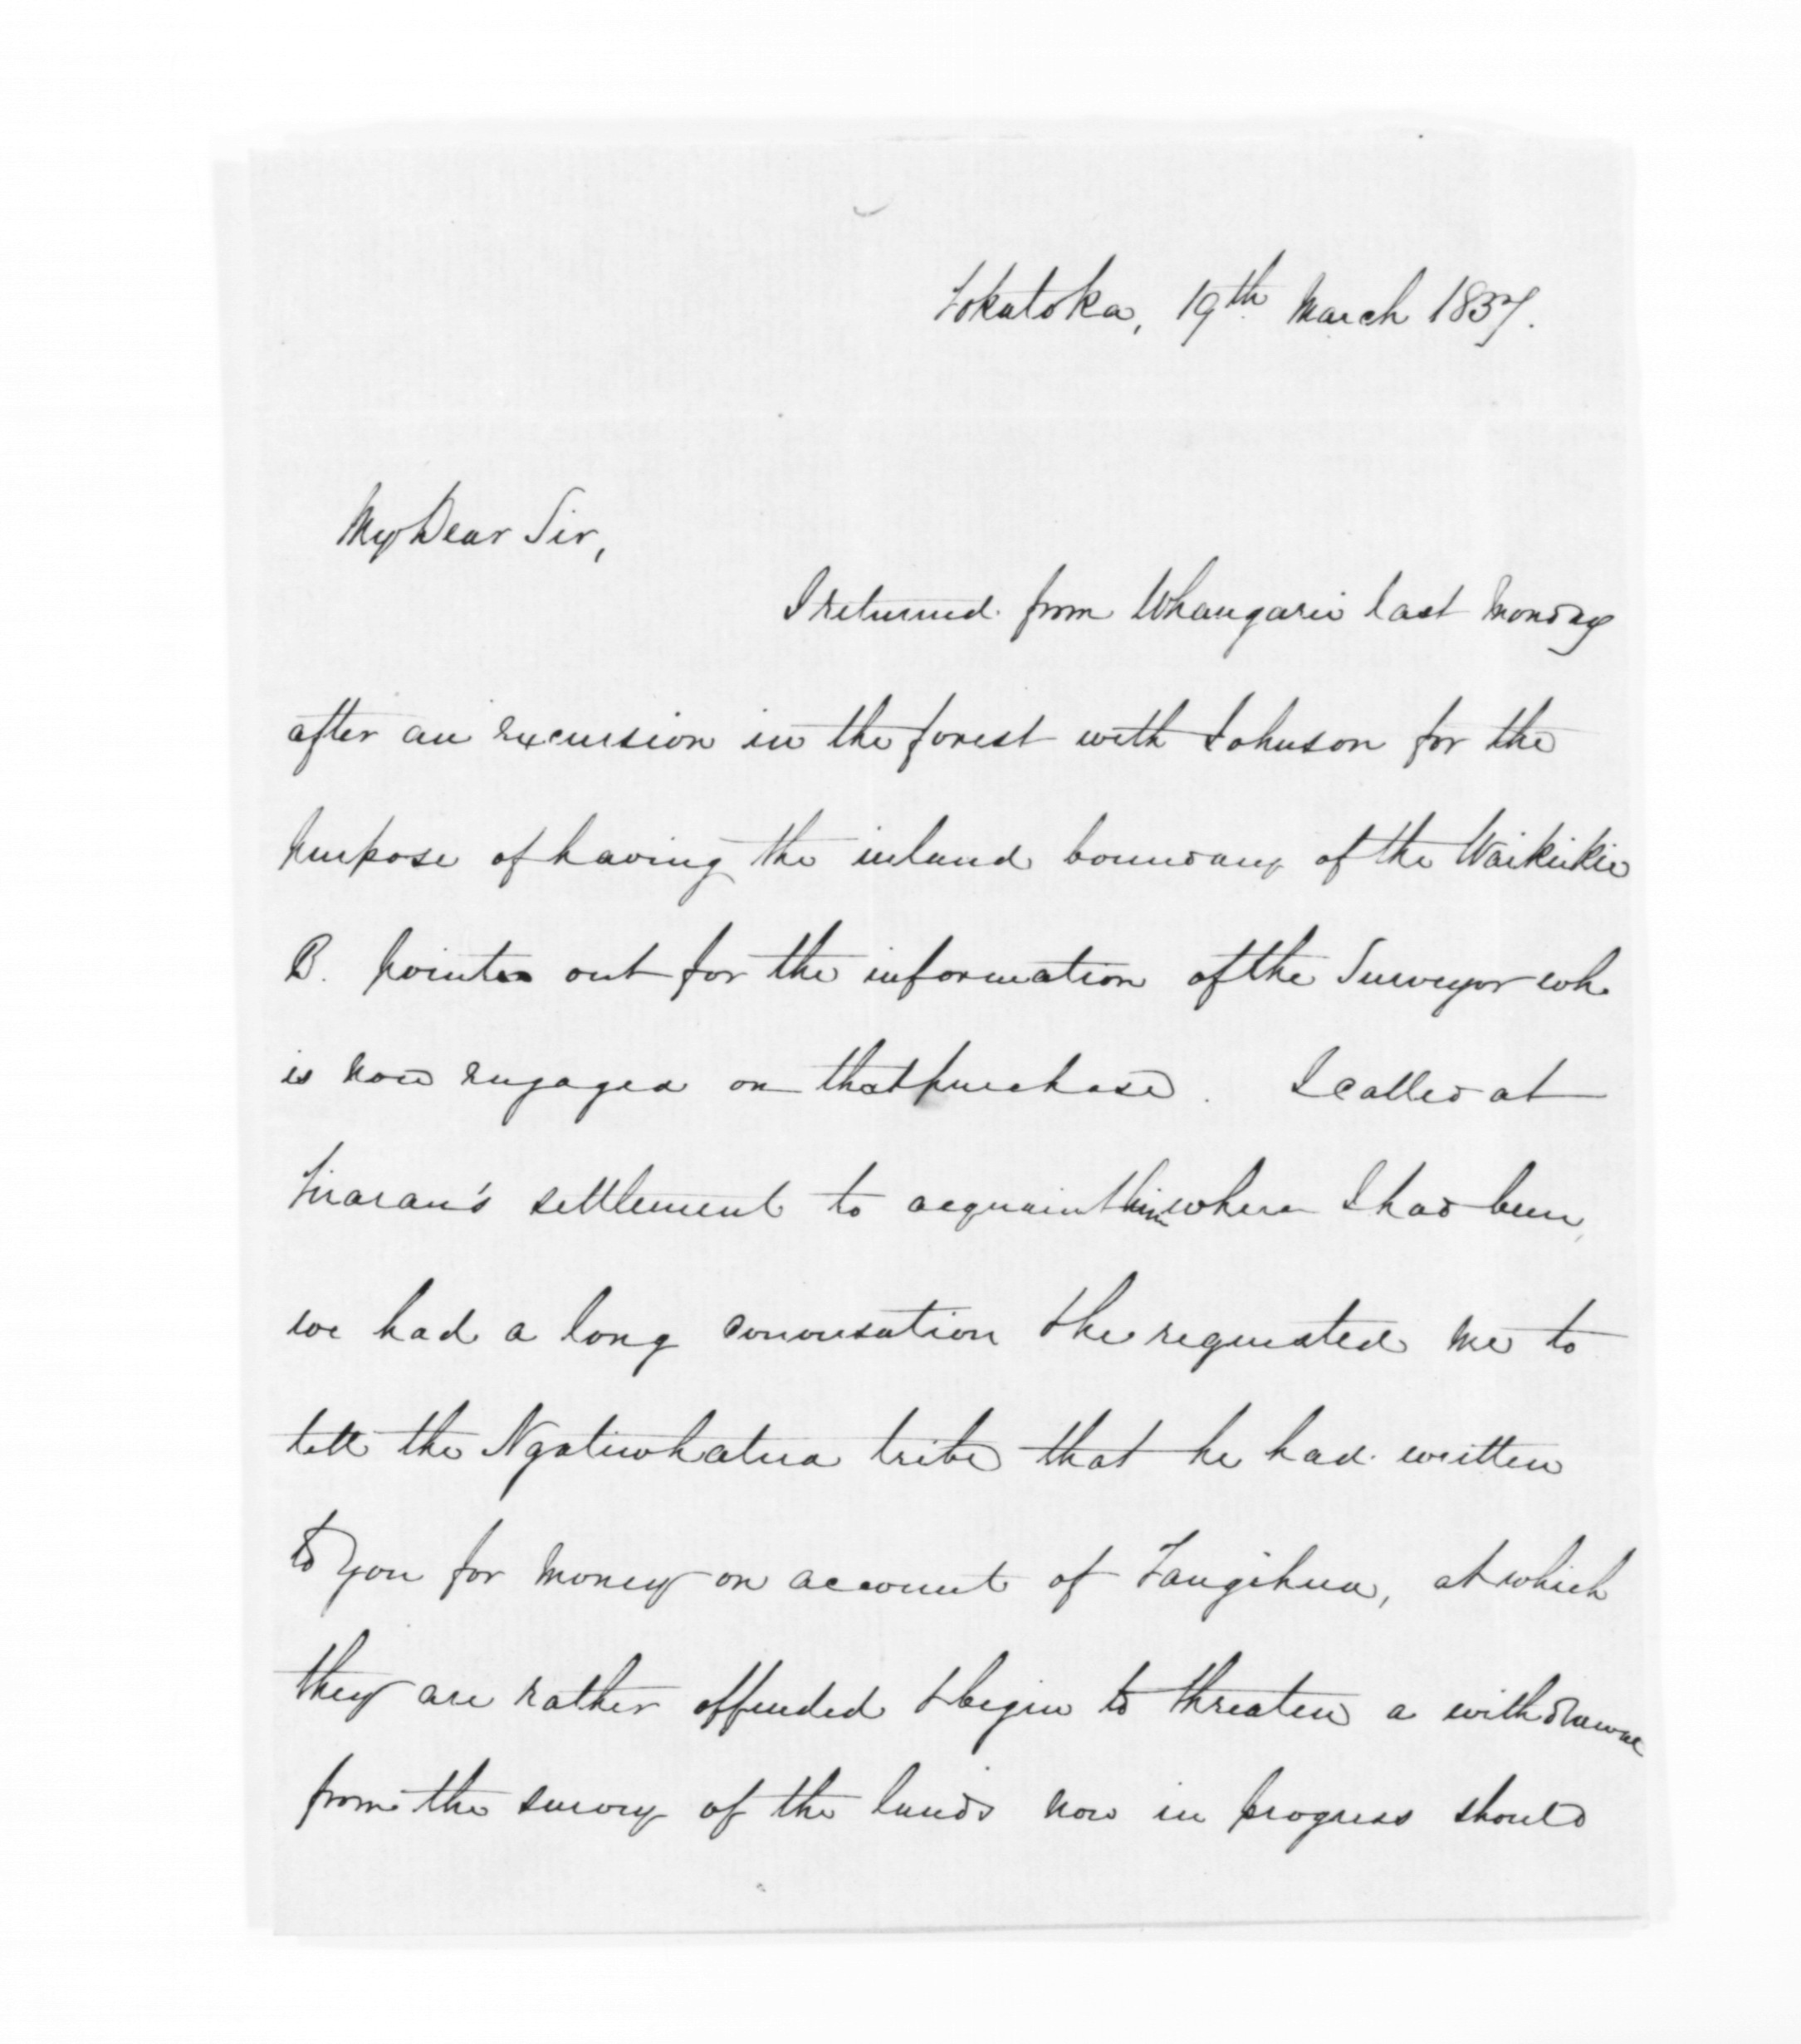 Tokatoka, 19th March 1857.
My Dear Sir,
I returned from Whangarei last Monday
after an excursion in the forest with Johnson for the
purpose of having the inland boundary of the Waikiekie
B. pointed out for the information of the Surveyor who
is now engaged on that purchase. I called at
Tirarau's settlement to acquaint him where I had been,
we had a long conversation & he requested me to
tell the Ngatiwhatua tribe that he had written
to you for money on account of Tangihua, at which
they are rather offended & begin to threaten a withdrawal
from the survey of the lands now in progress should